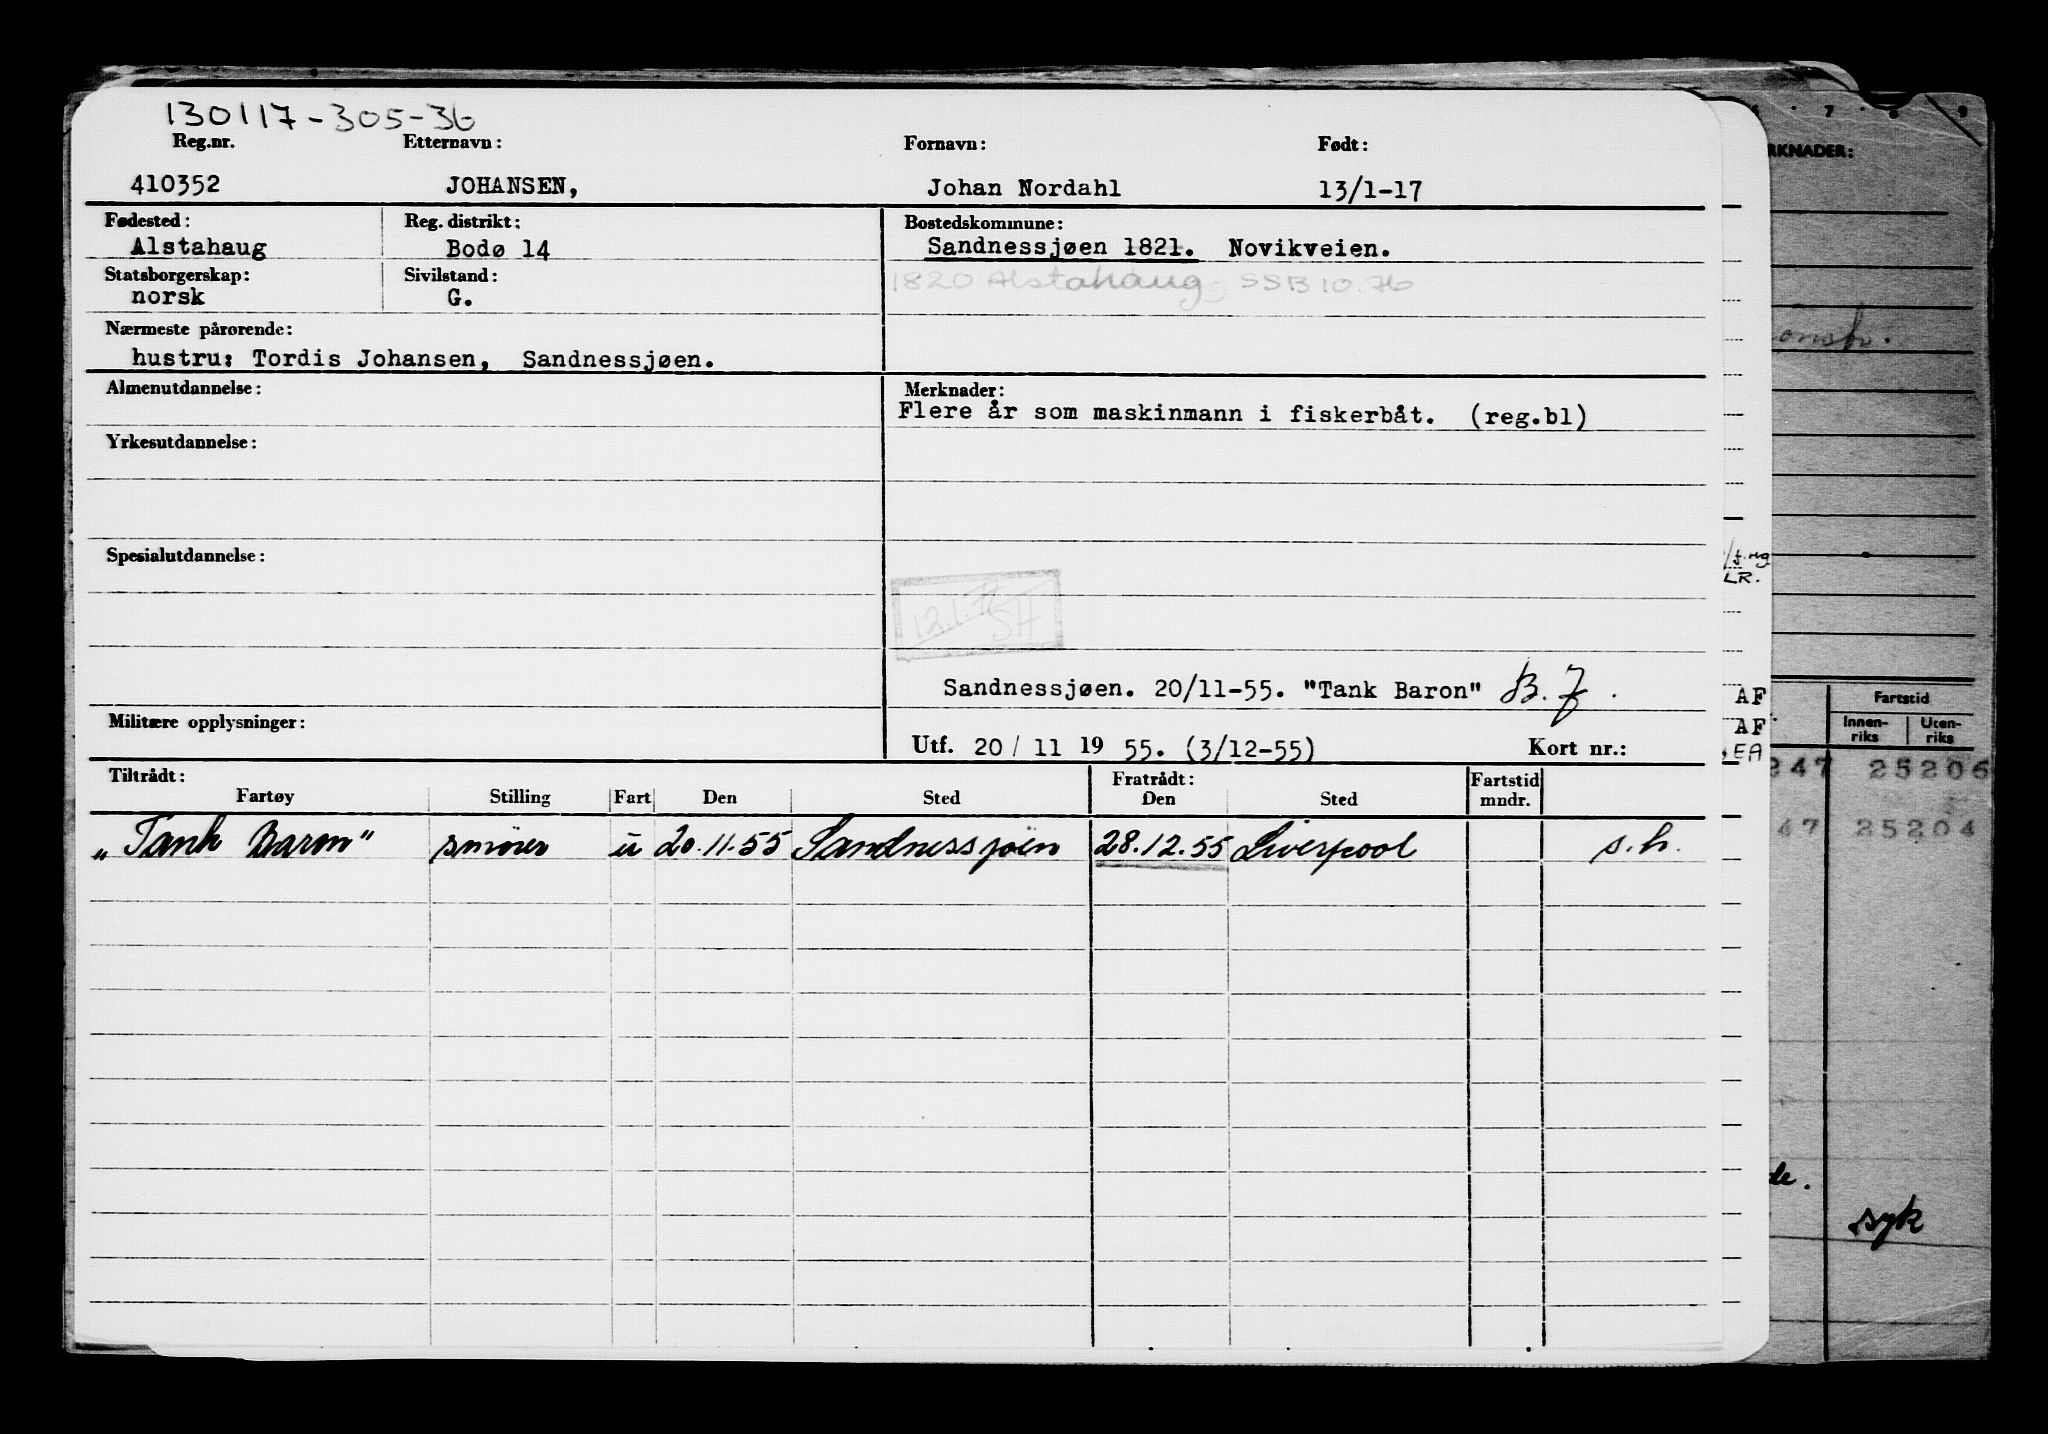 130117-305-36
Reg.nr. Etternavn: Fornavn: Født:
410352 JOHANSEN, Johan Nordahl 13/1-17
Fødested: Reg. distrikt: Bostedskommune:
Alstahaug Bodø 14 Sandnessjøen 1821. Novikveien.
Statsborgerskap: Sivilstand: 1820 Alstahaug SSB 10.76
norsk G.
Nærmeste pårørende:
hustru: Tordis Johansen, Sandnessjøen.
Almenutdannelse: Merknader:
Flere år som maskinmann i fiskerbåt. (reg.bl)
Yrkesutdannelse:
Spesialutdannelse:
Sandnessjøen. 20/11-55. "Tank Baron" B. J.
Militære opplysninger:
Utf. 20/ 11 19 55. (3/12-55) Kort nr.:
Tiltrådt: Fratrådt: Fartstid
Fartøy Stilling Fart Den Sted Den Sted mndr.
"Tank Baron" smører u 20.11.55 Sandnessjøen 28.12.55 Liverpool s.h.
6 7 8 9
RKNADER:
LR.
AF
AF
EA
Fartstid
Innen-riks Uten-riks
247 25206
47 25204
de.
syk